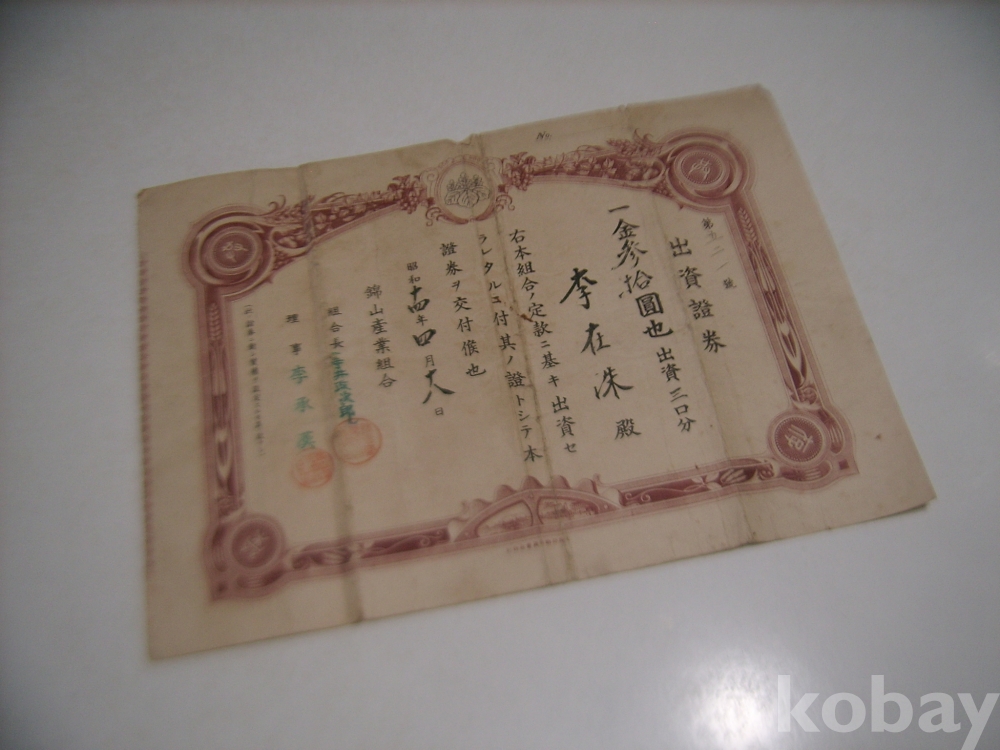 No.
出資證券
一金參拾圓也 出資三口分
李在洙殿
右本組合ノ定款ニ基キ出資セ
ラレタルニ付其ノ證トシテ本
證券ヲ交付候也
昭和十四年四月 日
錦山產業組合
組合長
理事 李承
kobay